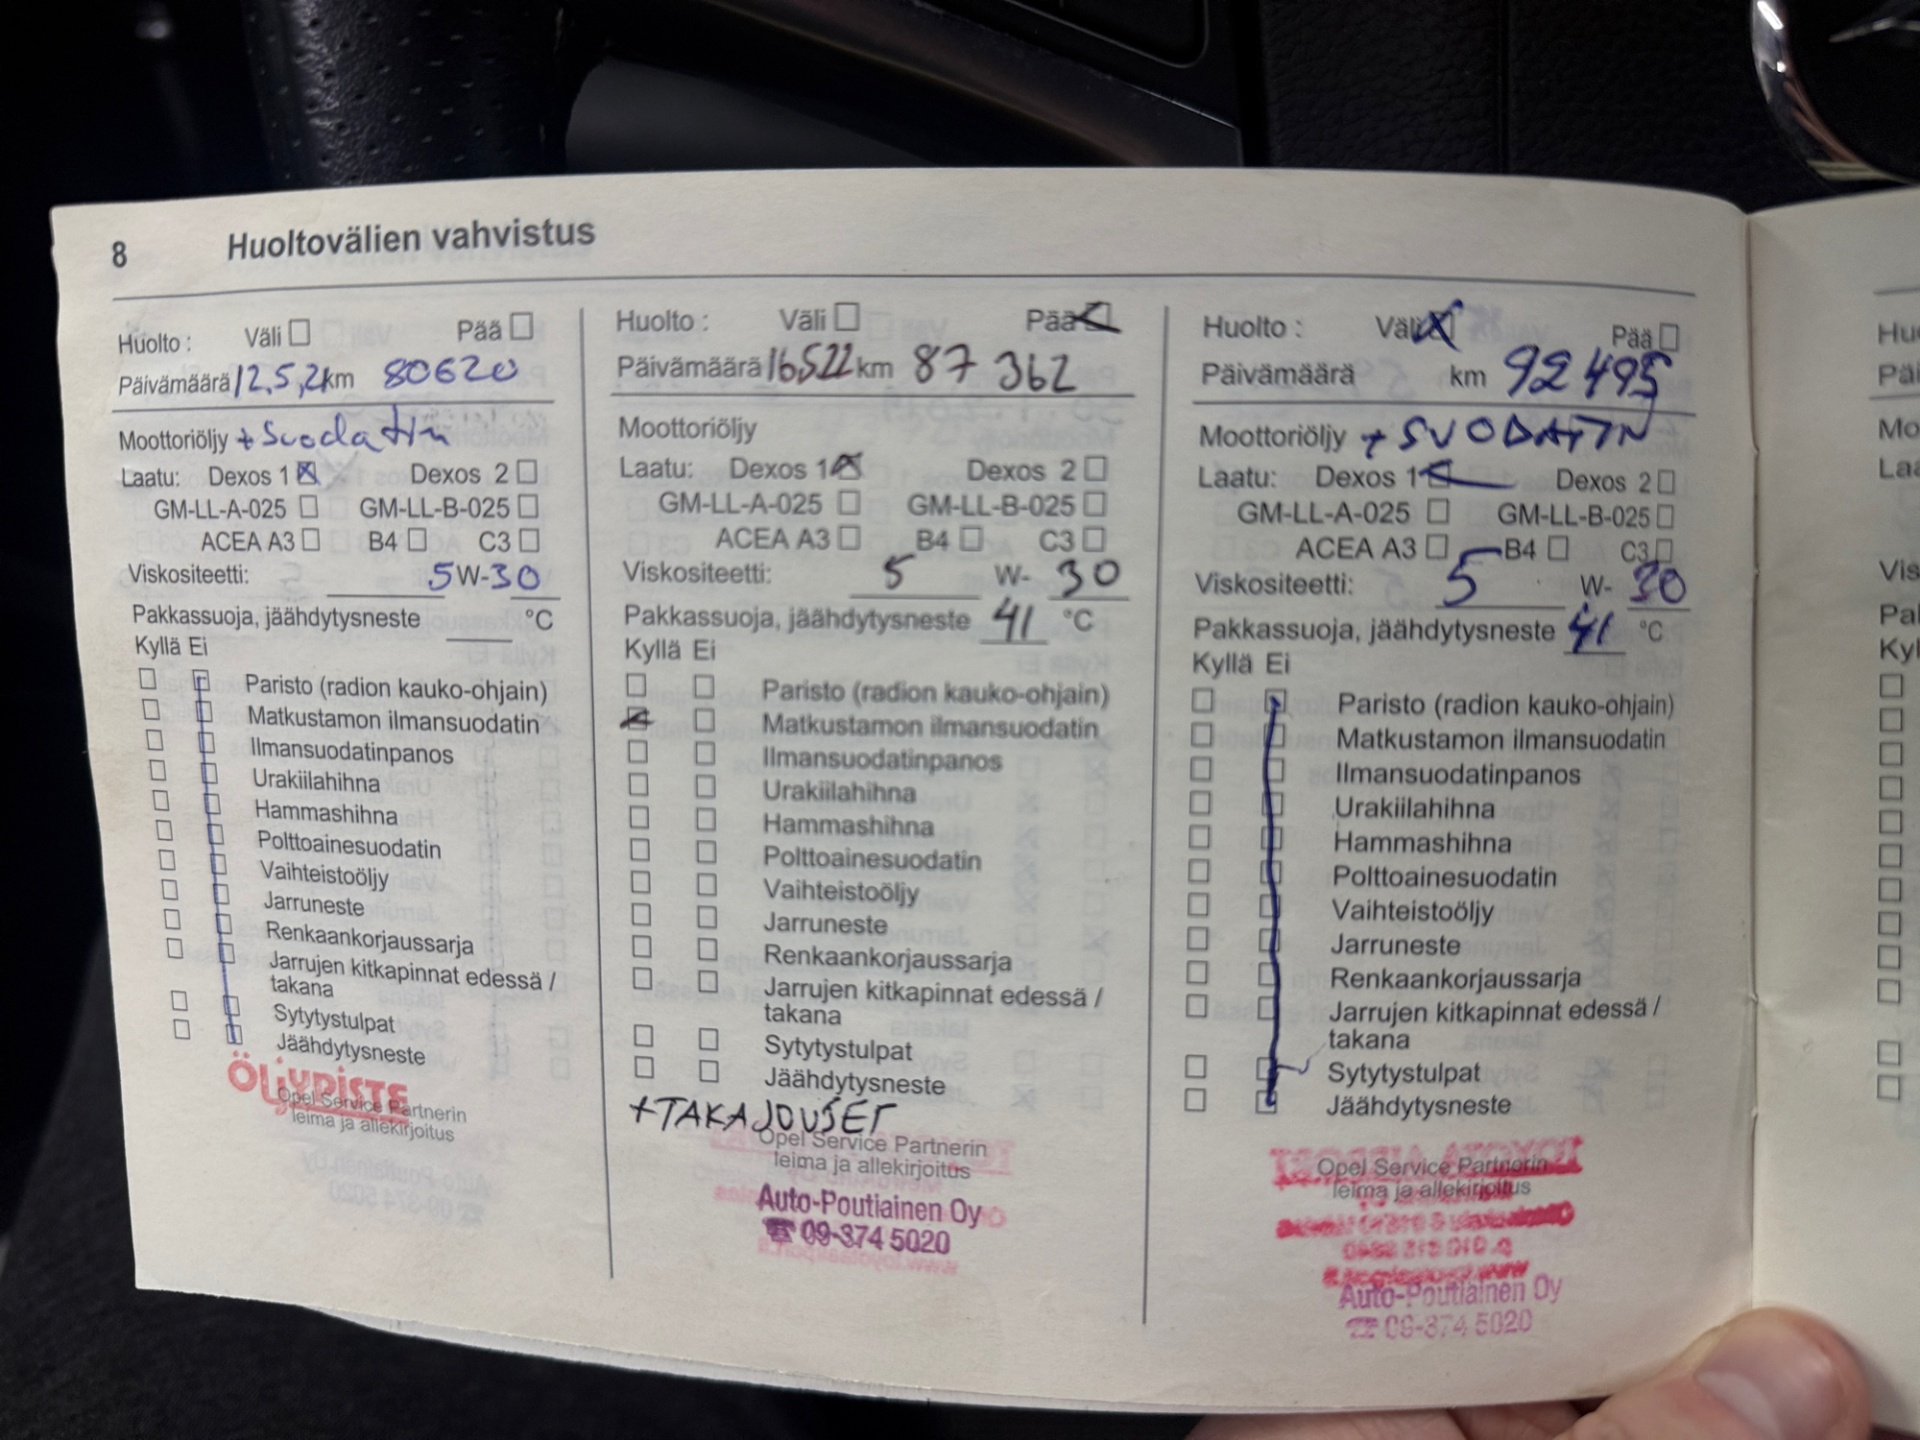 8 Huoltovälien vahvistus
Huolto : Väli Pää
Päivämäärä 12.5.21 km 80620
Moottoriöljy + Suodatin
Laatu: Dexos 1 Dexos 2
GM-LL-A-025 GM-LL-B-025
ACEA A3 B4 C3
Viskositeetti: 5 W-30
Pakkassuoja, jäähdytysneste °C
Kyllä Ei
Paristo (radion kauko-ohjain)
Matkustamon ilmansuodatin
Ilmansuodatinpanos
Urakiilahihna
Hammashihna
Polttoainesuodatin
Vaihteistoöljy
Jarruneste
Renkaankorjaussarja
Jarrujen kitkapinnat edessä /
takana
Sytytystulpat
Jäähdytysneste
ÖLJYPISTE
Opel Service Partnerin
leima ja allekirjoitus
Huolto : Väli Pää
Päivämäärä 16522 km 87 362
Moottoriöljy
Laatu: Dexos 1 Dexos 2
GM-LL-A-025 GM-LL-B-025
ACEA A3 B4 C3
Viskositeetti: 5 W- 30
Pakkassuoja, jäähdytysneste 41 °C
Kyllä Ei
Paristo (radion kauko-ohjain)
Matkustamon ilmansuodatin
Ilmansuodatinpanos
Urakiilahihna
Hammashihna
Polttoainesuodatin
Vaihteistoöljy
Jarruneste
Renkaankorjaussarja
Jarrujen kitkapinnat edessä /
takana
Sytytystulpat
Jäähdytysneste
+TAKAJOUSET
Opel Service Partnerin
leima ja allekirjoitus
Auto-Poutiainen Oy
☎ 09-374 5020
Huolto : Väli Pää
Päivämäärä km 92 495
Moottoriöljy + SUODATIN
Laatu: Dexos 1 Dexos 2
GM-LL-A-025 GM-LL-B-025
ACEA A3 B4 C3
Viskositeetti: 5 W- 30
Pakkassuoja, jäähdytysneste 41 °C
Kyllä Ei
Paristo (radion kauko-ohjain)
Matkustamon ilmansuodatin
Ilmansuodatinpanos
Urakiilahihna
Hammashihna
Polttoainesuodatin
Vaihteistoöljy
Jarruneste
Renkaankorjaussarja
Jarrujen kitkapinnat edessä /
takana
Sytytystulpat
Jäähdytysneste
Opel Service Partnerin
leima ja allekirjoitus
Auto-Poutiainen Oy
☎ 09-374 5020